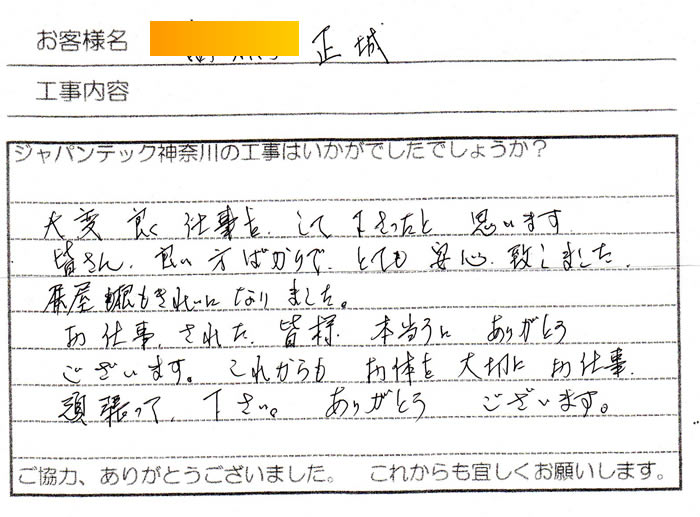 お客様名 正城
工事内容
ジャパンテック神奈川の工事はいかがでしたでしょうか?
大変 良く 仕事を して下さったと 思います
皆さん、良い方ばかりで、とても 安心 致しました、
屋根もきれいになりました。
お仕事、された、皆様 本当うに ありがとう
ございます。これからも お体を 大切に お仕事、
頑張って、下さい。 ありがとう ございます。
ご協力、ありがとうございました。 これからも宜しくお願いします。